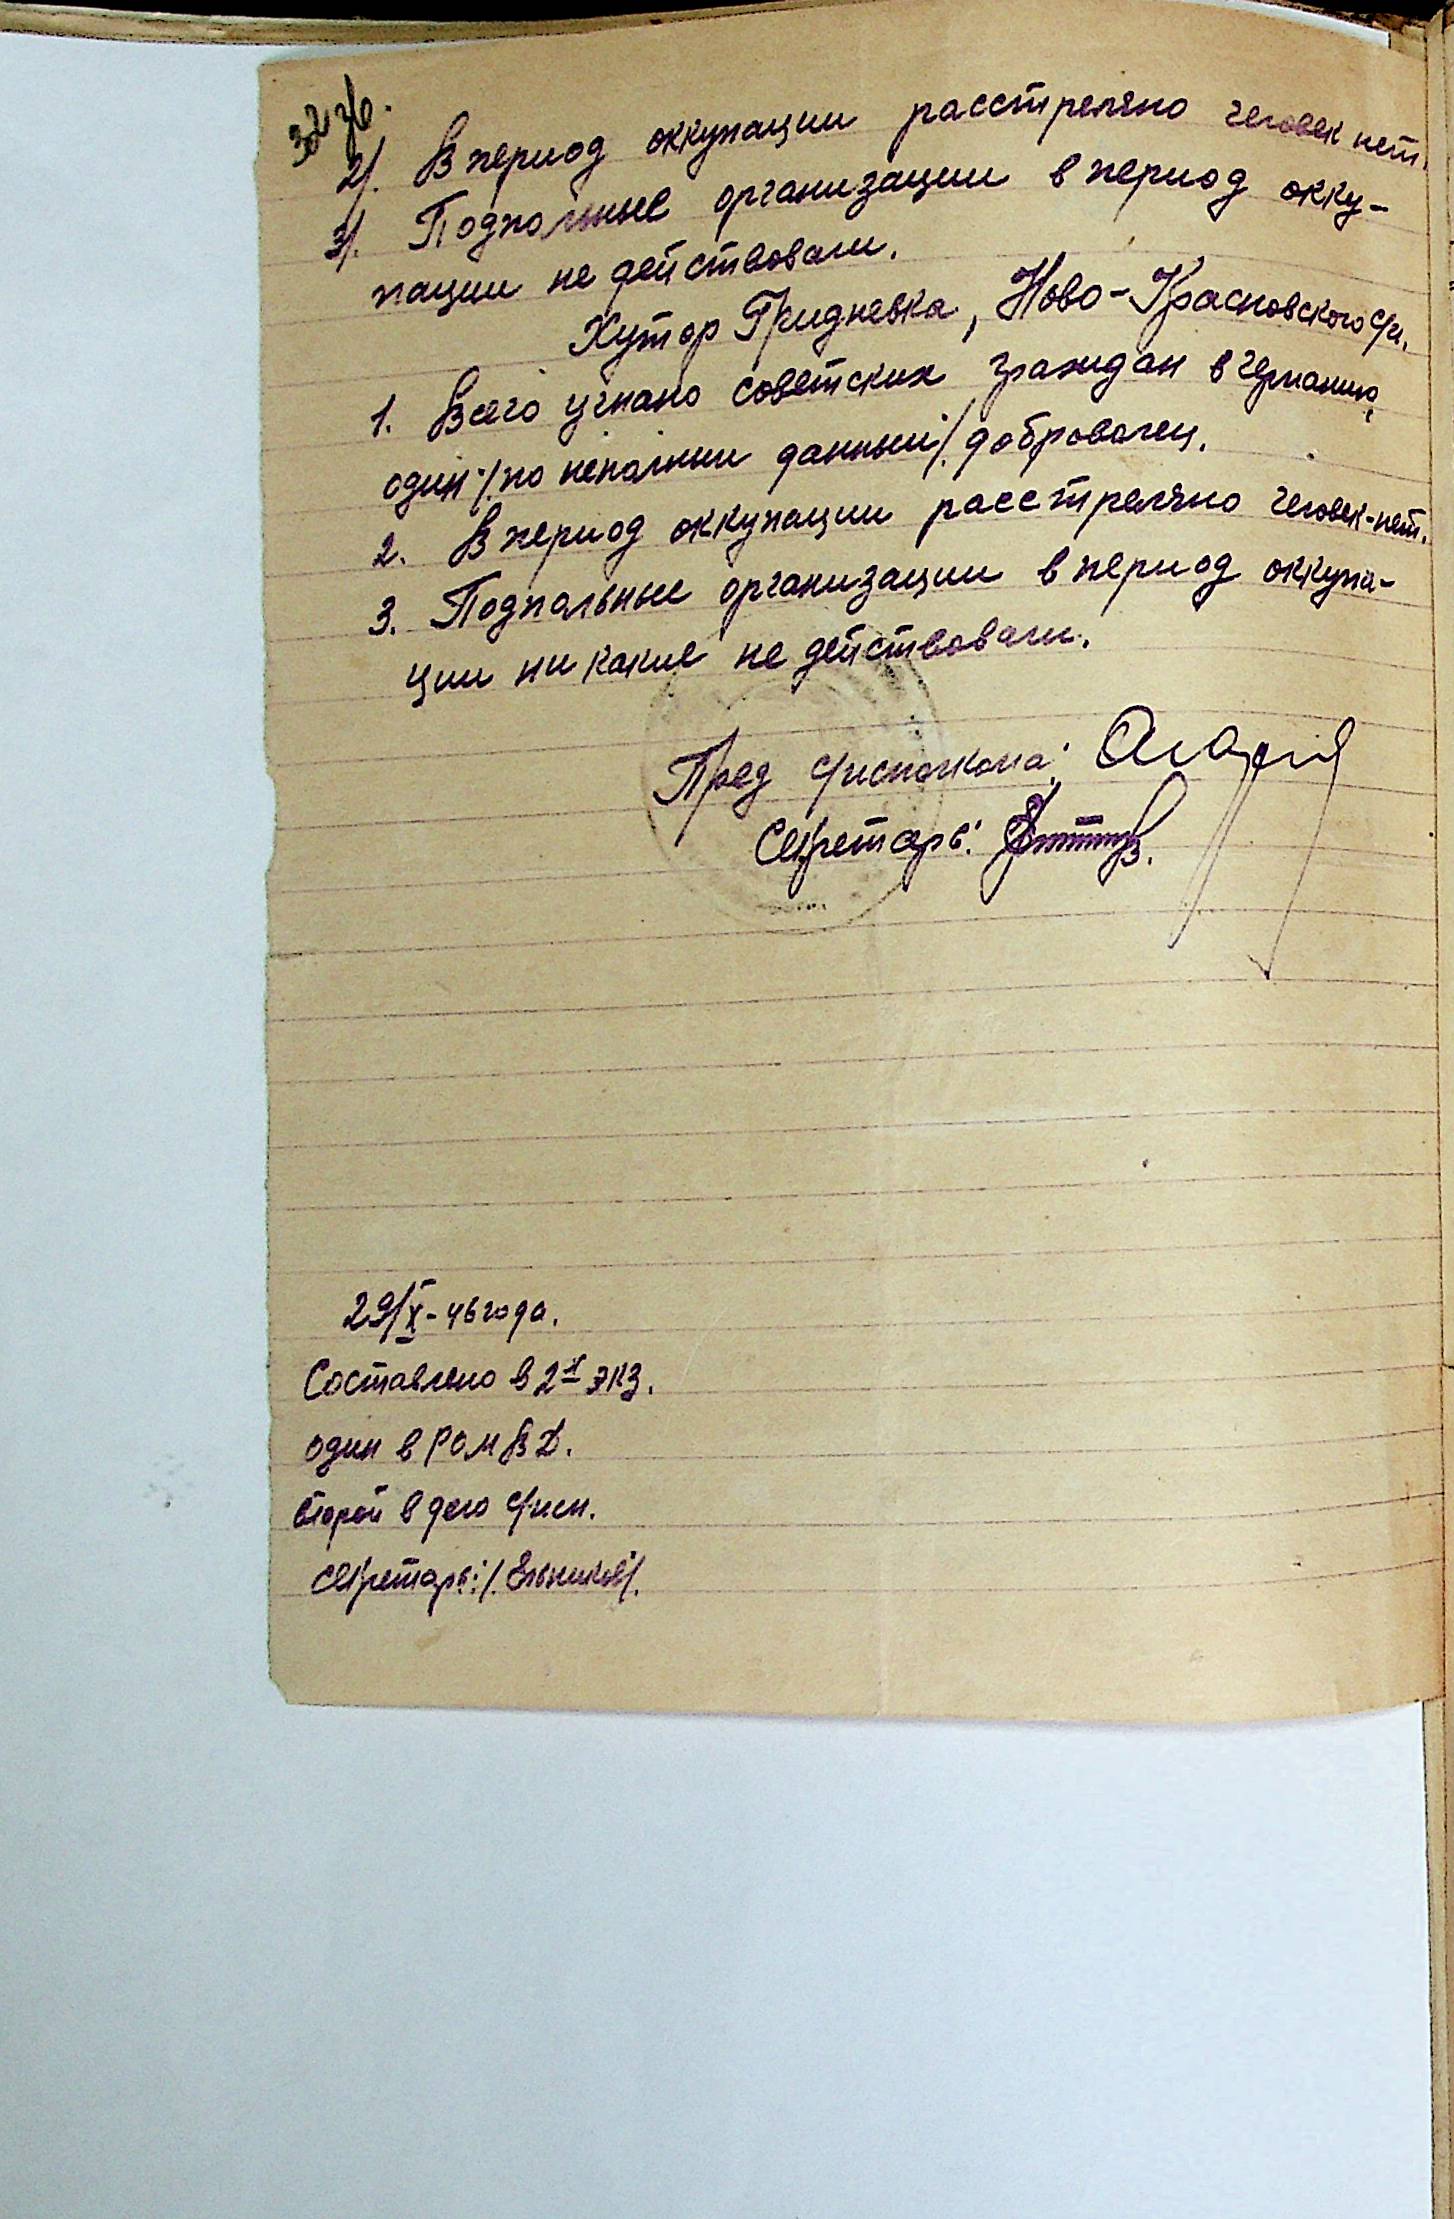 32 об.
2/. В период оккупации расстреляно человек нет.
3/. Подпольные организации в период окку-
пации не действовали.
Хутор Гридневка, Ново-Красновского с/и.
1. Всего угнано советских граждан в Германию,
один /по неполным данным/ доброволец.
2. В период оккупации расстреляно человек-нет.
3. Подпольные организации в период оккупа-
ции ни какие не действовали.
Пред с/исполкома:
Секретарь:
29/X-46 года.
Составлено в 2х экз.
один в РОМВД.
второй в дело с/исп.
секретарь: